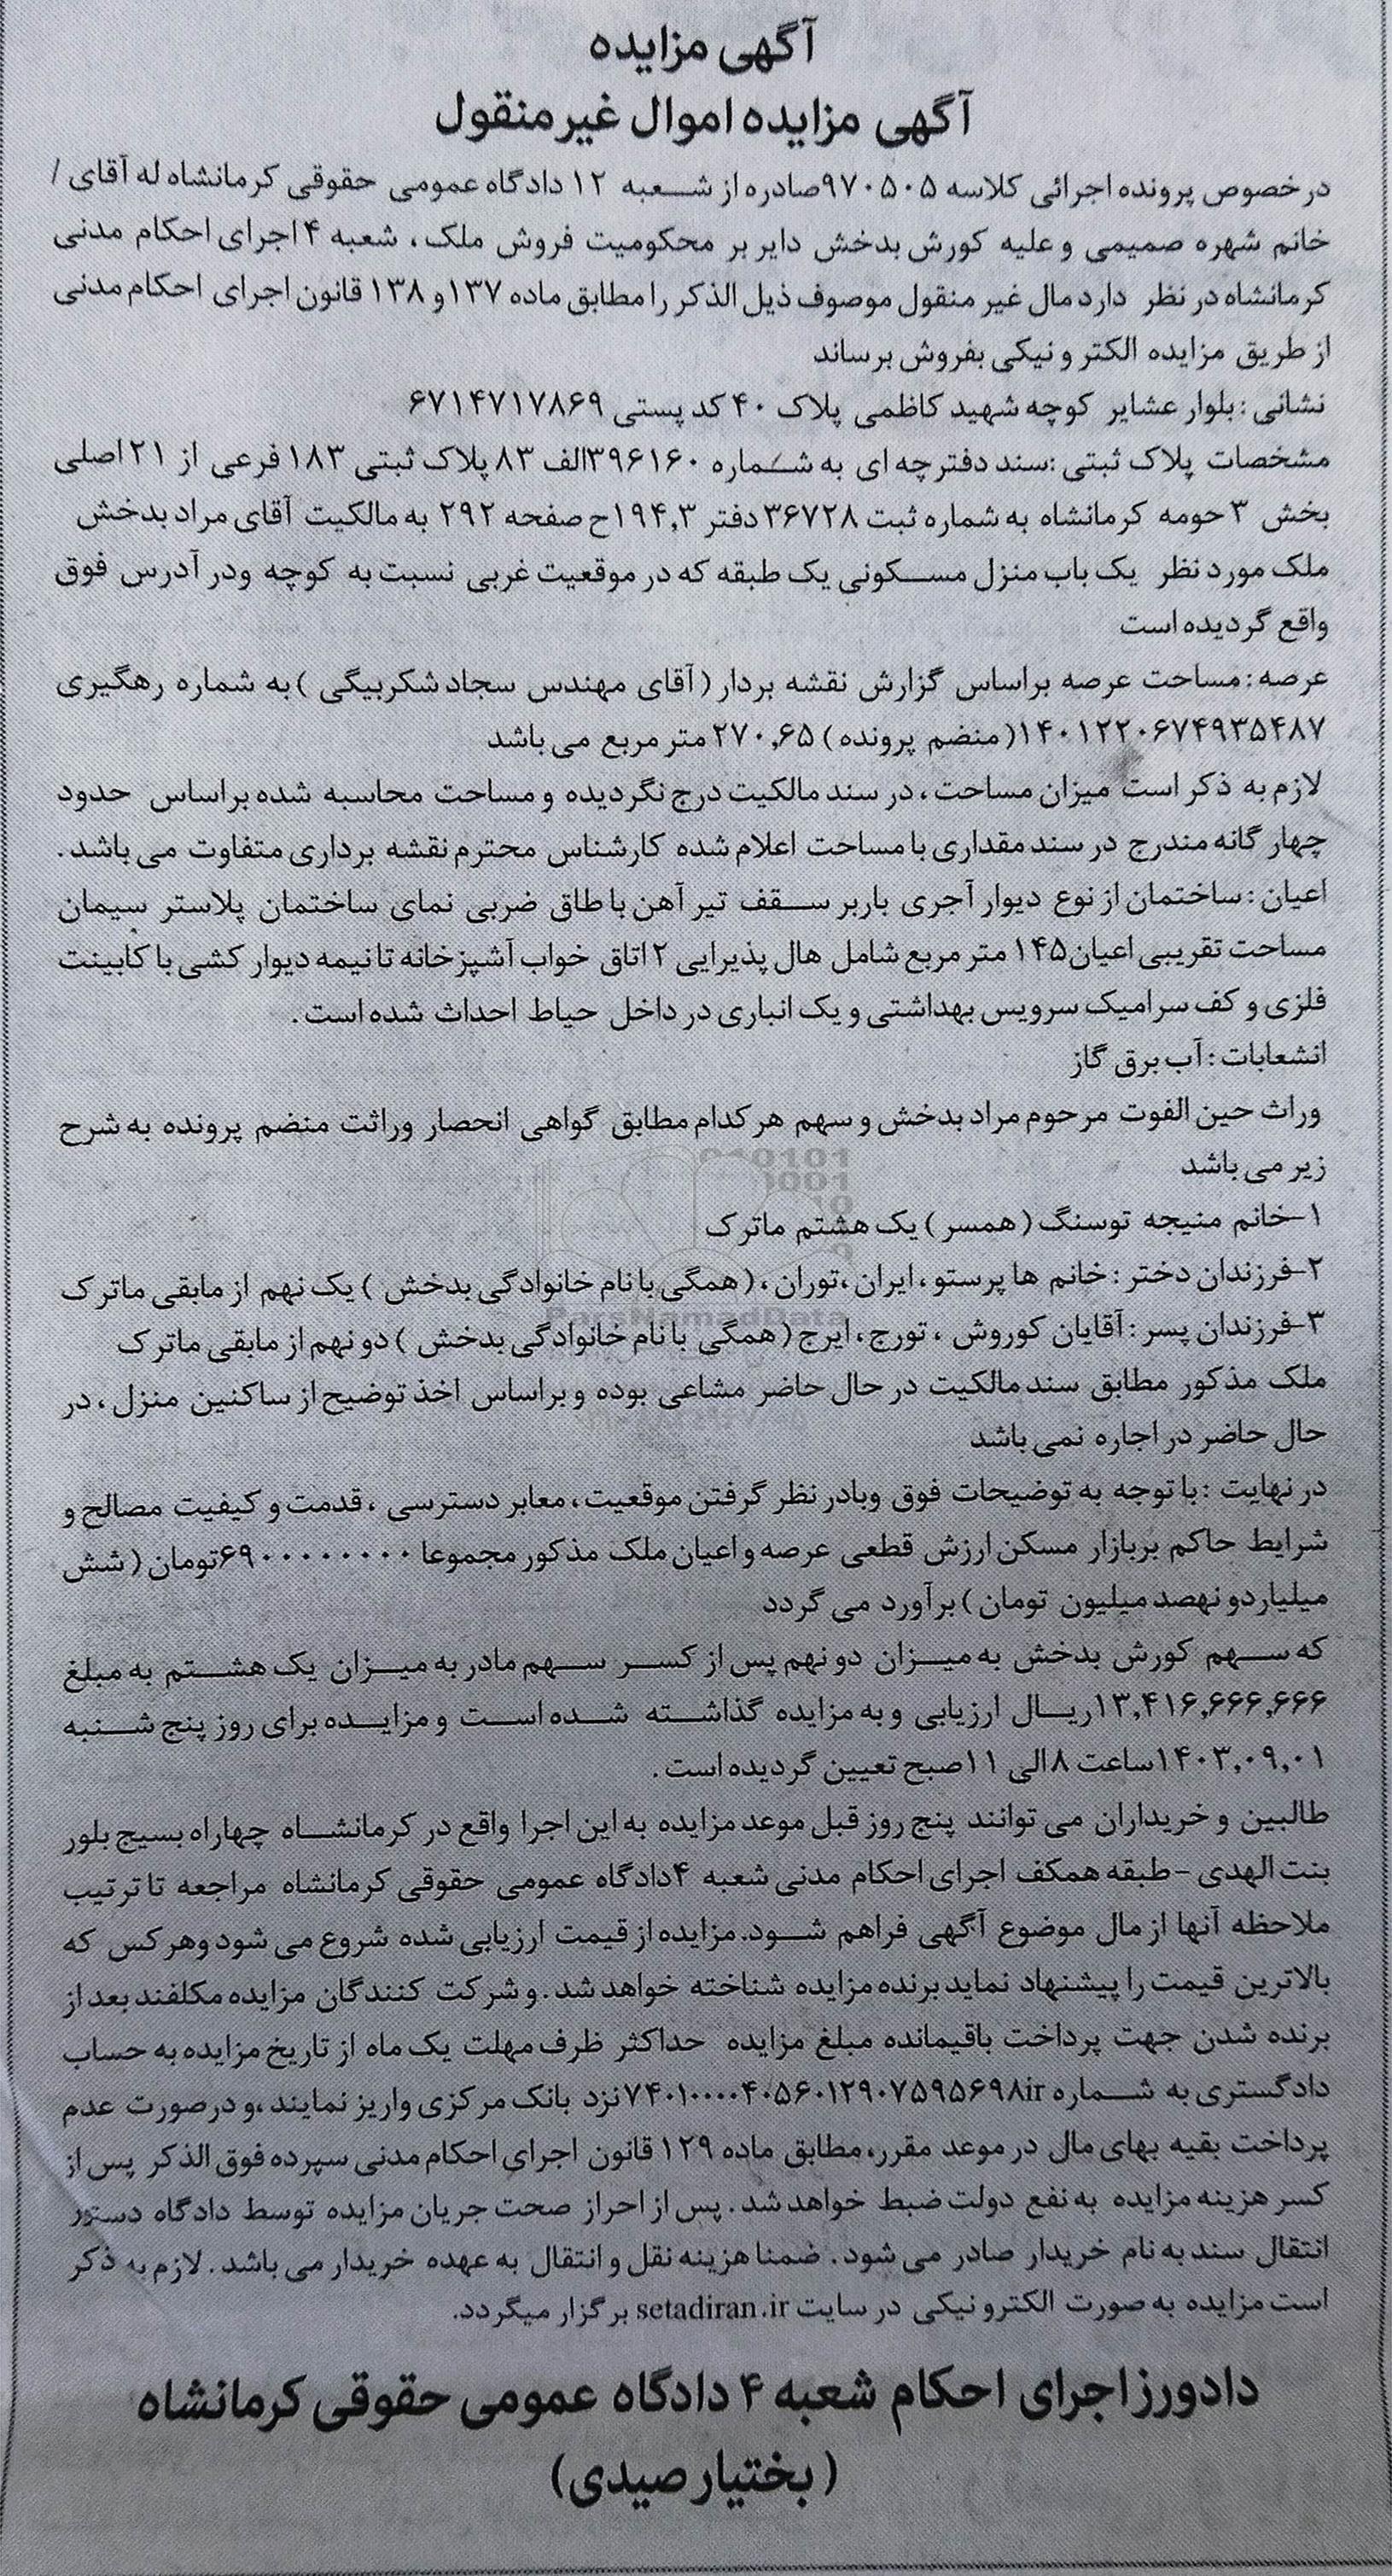 آگهی مزایده
آگهی مزایده اموال غیرمنقول
در خصوص پرونده اجرائی کلاسه ۹۷۰۵۰۵صادره از شعبه ۱۲ دادگاه عمومی حقوقی کرمانشاه له آقای /
خانم شهره صمیمی و علیه کورش بدخش دایر بر محکومیت فروش ملک، شعبه ۴ اجرای احکام مدنی
کرمانشاه در نظر دارد مال غیر منقول موصوف ذیل الذکر را مطابق ماده ۱۳۷و ۱۳۸ قانون اجرای احکام مدنی
از طریق مزایده الکترونیکی بفروش برساند
نشانی : بلوار عشایر کوچه شهید کاظمی پلاک ۴۰ کد پستی ۶۷۱۴۷۱۷۸۶۹
مشخصات پلاک ثبتی :سند دفترچه ای به شماره ۳۹۶۱۶۰الف ۸۳ پلاک ثبتی ۱۸۳ فرعی از ۲۱ اصلی
بخش ۳ حومه کرمانشاه به شماره ثبت ۳۶۷۲۸ دفتر ۱۹۴٫۳ح صفحه ۲۹۲ به مالکیت آقای مراد بدخش
ملک مورد نظر یک باب منزل مسکونی یک طبقه که در موقعیت غربی نسبت به کوچه ودر آدرس فوق
واقع گردیده است
عرصه : مساحت عرصه براساس گزارش نقشه بردار (آقای مهندس سجاد شکربیگی ) به شماره رهگیری
۱۴۰۱۲۲۰۶۷۴۹۳۵۴۸۷(منضم پرونده) ۲۷۰٫۶۵ متر مربع می باشد
لازم به ذکر است میزان مساحت، در سند مالکیت درج نگردیده و مساحت محاسبه شده براساس حدود
چهار گانه مندرج در سند مقداری با مساحت اعلام شده کارشناس محترم نقشه برداری متفاوت می باشد.
اعیان : ساختمان از نوع دیوار آجری باربر سقف تیر آهن با طاق ضربی نمای ساختمان پلاستر سیمان
مساحت تقریبی اعیان۱۴۵ متر مربع شامل هال پذیرایی ۲ اتاق خواب آشپزخانه تا نیمه دیوار کشی با کابینت
فلزی و کف سرامیک سرویس بهداشتی و یک انباری در داخل حیاط احداث شده است.
انشعابات : آب برق گاز
وراث حین الفوت مرحوم مراد بدخش و سهم هر کدام مطابق گواهی انحصار وراثت منضم پرونده به شرح
زیر می باشد
۱-خانم منیجه توسنگ (همسر) یک هشتم ماترک
۲-فرزندان دختر : خانم ها پرستو، ایران ،توران ، (همگی با نام خانوادگی بدخش ) یک نهم از مابقی ماترک
۳-فرزندان پسر : آقایان کوروش ، تورج، ایرج (همگی با نام خانوادگی بدخش ) دو نهم از مابقی ماترک
ملک مذکور مطابق سند مالکیت در حال حاضر مشاعی بوده و براساس اخذ توضیح از ساکنین منزل، در
حال حاضر در اجاره نمی باشد
در نهایت : با توجه به توضیحات فوق وبادر نظر گرفتن موقعیت، معابر دسترسی ، قدمت و کیفیت مصالح و
شرایط حاکم بربازار مسکن ارزش قطعی عرصه و اعیان ملک مذکور مجموعا ۶۹۰۰۰۰۰۰۰۰تومان (شش
میلیارد و نهصد میلیون تومان) برآورد می گردد
که سهم کورش بدخش به میزان دو نهم پس از کسر سهم مادر به میزان یک هشتم به مبلغ
۱۳,۴۱۶,۶۶۶,۶۶۶ریال ارزیابی و به مزایده گذاشته شده است و مزایده برای روز پنج شنبه
۱۴۰۳,۰۹,۰۱ساعت ۸ الی ۱۱ صبح تعیین گردیده است.
طالبین و خریداران می توانند پنج روز قبل موعد مزایده به این اجرا واقع در کرمانشاه چهاراه بسیج بلور
بنت الهدی -طبقه همکف اجرای احکام مدنی شعبه ۴دادگاه عمومی حقوقی کرمانشاه مراجعه تا ترتیب
ملاحظه آنها از مال موضوع آگهی فراهم شود. مزایده از قیمت ارزیابی شده شروع می شود وهر کس که
بالاترین قیمت را پیشنهاد نماید برنده مزایده شناخته خواهد شد. و شرکت کنندگان مزایده مکلفند بعد از
برنده شدن جهت پرداخت باقیمانده مبلغ مزایده حداکثر ظرف مهلت یک ماه از تاریخ مزایده به حساب
دادگستری به شماره ۷۴۰۱۰۰۰۰۴۰۵۶۰۱۲۹۰۷۵۹۵۶۹۸irنزد بانک مرکزی واریز نمایند ،و درصورت عدم
پرداخت بقیه بهای مال در موعد مقرر، مطابق ماده ۱۲۹ قانون اجرای احکام مدنی سپرده فوق الذکر پس از
کسر هزینه مزایده به نفع دولت ضبط خواهد شد. پس از احراز صحت جریان مزایده توسط دادگاه دستور
انتقال سند به نام خریدار صادر می شود. ضمنا هزینه نقل و انتقال به عهده خریدار می باشد. لازم به ذکر
است مزایده به صورت الکترونیکی در سایت setadiran.ir برگزار میگردد.
دادورز اجرای احکام شعبه ۴ دادگاه عمومی حقوقی کرمانشاه
(بختیار صیدی)